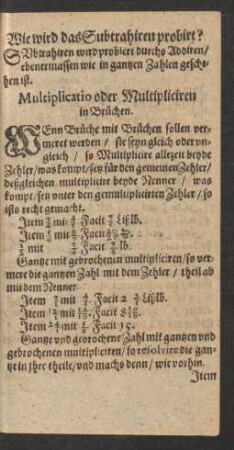 Wie wird das Subtrahiren probirt?
SUbtrahiren wird probiert durchs Addiren/
ebenermassen wie in gantzen Zahlen gesche-
hen ist.
Multiplicatio oder Multipliciren
in Brüchen.
WEnn Brüche mit Brüchen sollen ver-
meret werden / sie seyn gleich oder vn-
gleich / so Multiplicire allezeit beyde
Zehler/was kompt/sey für den gemeinen Zehler/
deßgleichen multiplicire beyde Nenner / was
kompt/sey vnter den gemultiplicirten Zehler / so
ists recht gemacht.
Item mit Facit Lißlb.
Item mit Facit
mit Facit lb.
Gantze mit gebrochenen multipliciren/so ver-
mere die gantzen Zahl mit dem Zehler / theil ab
mit dem Nenner
Item 7 mit Facit 2 Lißlb.
Item mit Facit
Item mit Facit 15.
Gantze vnd gebrochene Zahl mit gantzen vnd
gebrochenen multipliciren / so resolvire die gan-
tze in jhre theile/vnd machs denn / wie vorhin.
Item